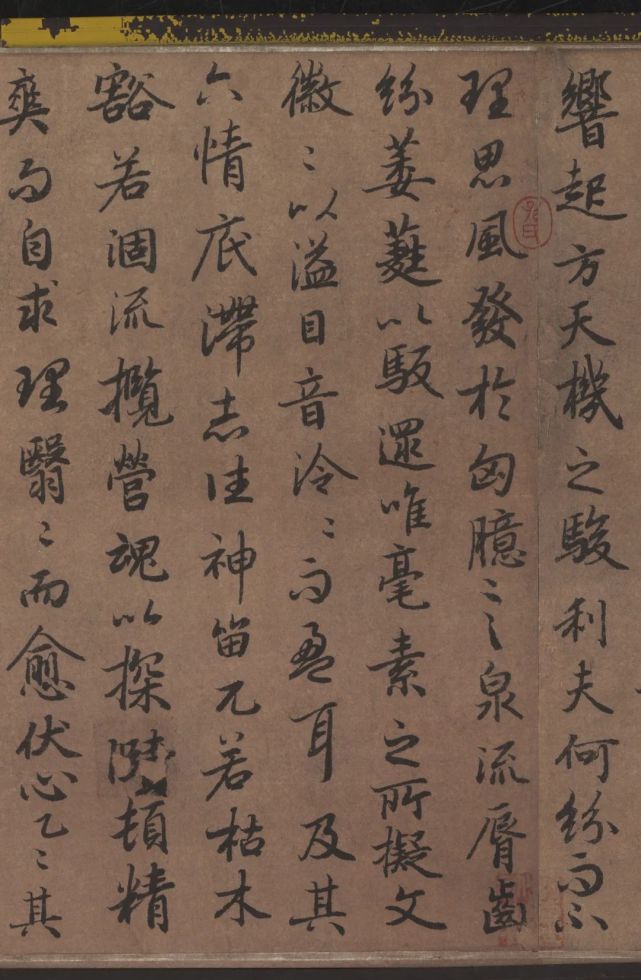 響起方天機之駿利夫何紛而不
理思風發於匈臆言泉流脣齒
紛萎蕤以馺遝唯毫素之所擬文
徽〻以溢目音泠〻而盈耳及其
六情底滯志往神留兀若枯木
豁若涸流攬營魂以探頓精
爽而自求理翳〻而愈伏心乙〻其